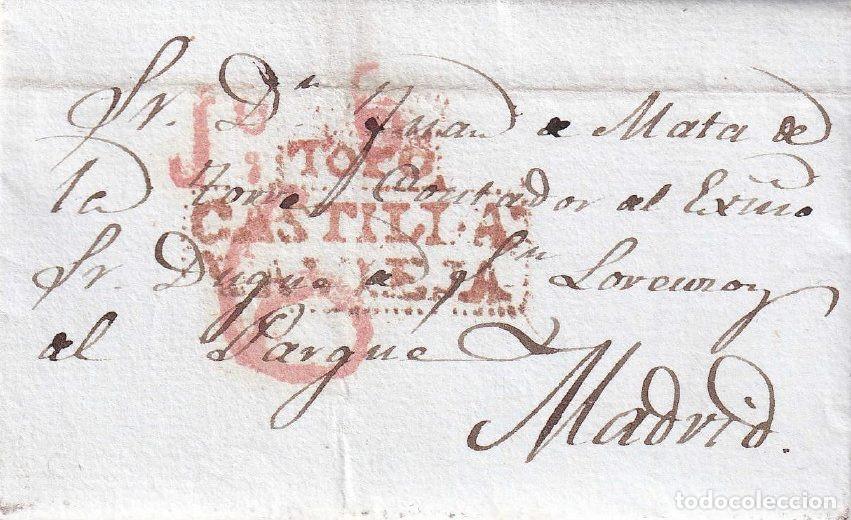 Sr. Dn Juan de Mata de
la Torre Contador al Exmo
Sr. Duque de Sn Lorenzo y
al Parque &
Madrid.
TORO
CASTILLA
VIEJA
6
todocoleccion